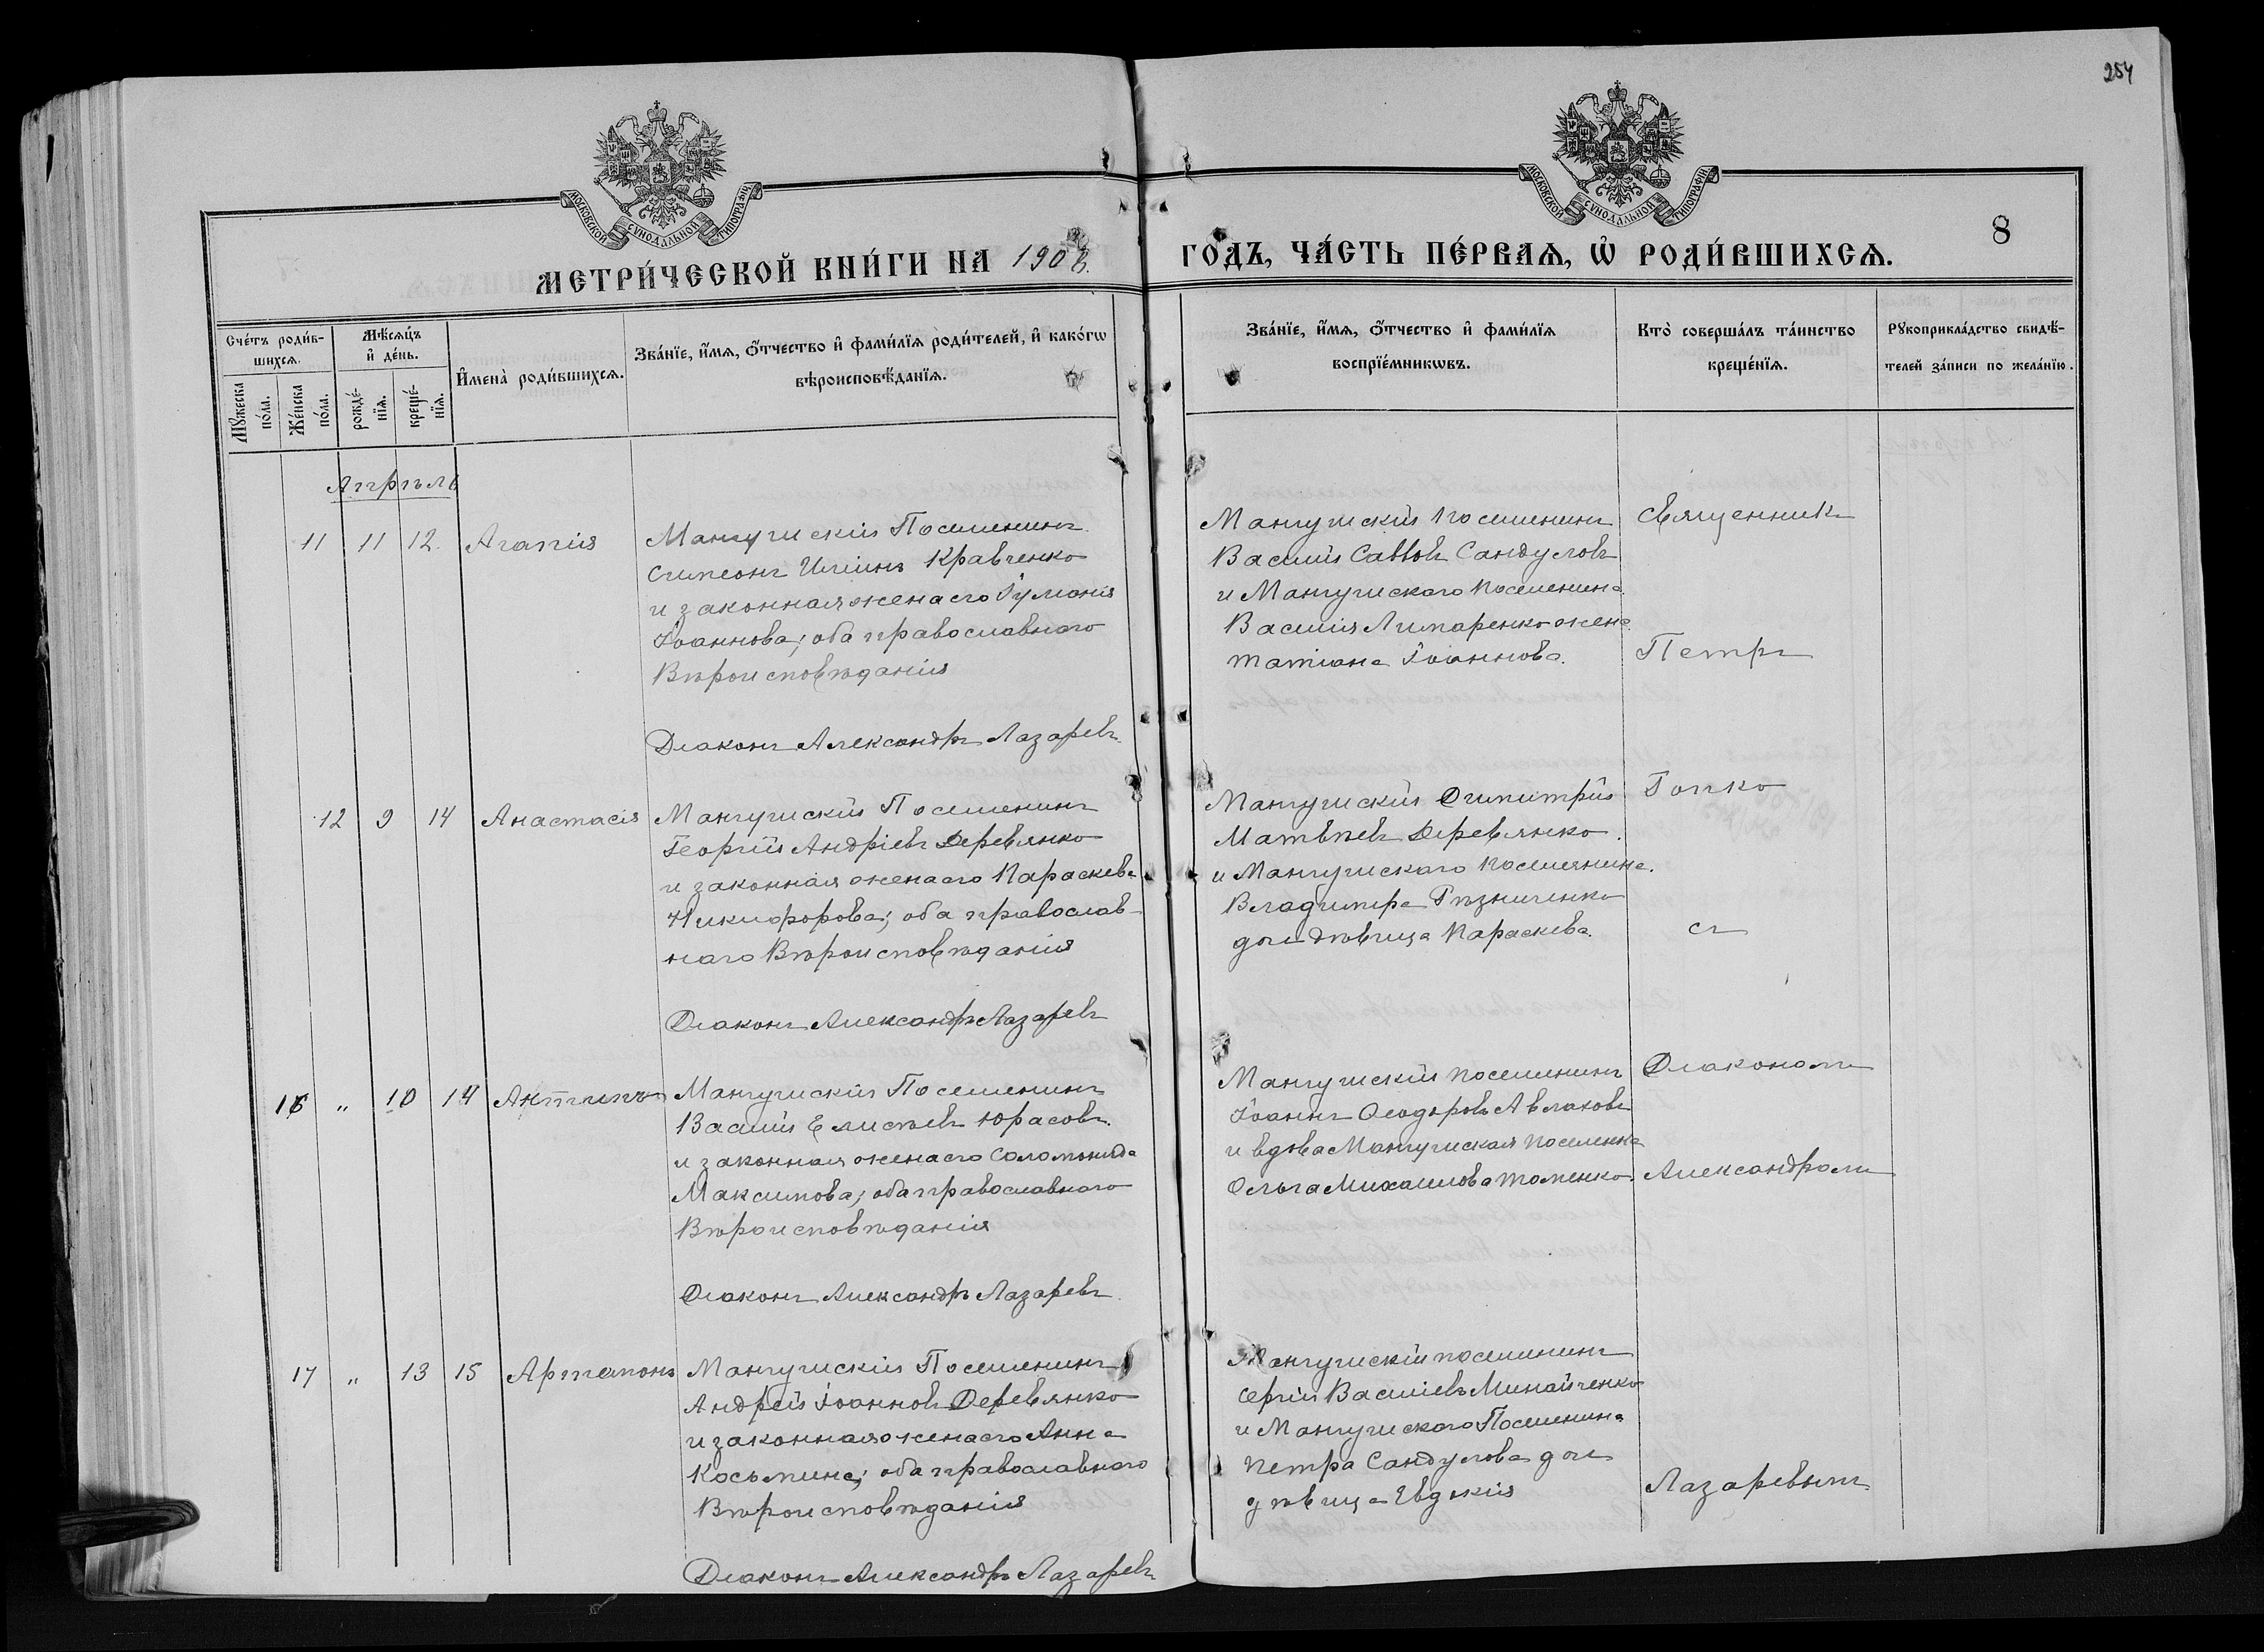 254
МОСКОВСКОЙ СѴНОДАЛЬНОЙ ТИПОГРАФІИ
МОСКОВСКОЙ СѴНОДАЛЬНОЙ ТИПОГРАФІИ
8
МЕТРИ́ЧЕСКОЙ КНИ́ГИ НА 1908. ГО́ДЪ, ЧА́СТЬ ПЕ́РВАѦ, Ѡ҆ РОДИ́ВШИХСѦ.
Сче́тъ роди́в-
шихсѧ.
Мꙋ́жеска по́ла.
Же́нска по́ла.
Мѣ́сѧцъ и҆ де́нь.
рожде́-нїѧ.
креще́-нїѧ.
И҆мена̀ роди́вшихсѧ.
Зва́нїе, и҆́мѧ, ѻ҆́тчество и҆ фами́лїѧ роди́телей, и҆ како́гѡ
вѣроисповѣ́данїѧ.
Зва́нїе, и҆́мѧ, ѻ҆́тчество и҆ фами́лїѧ
воспрїе́мникѡвъ.
Кто̀ соверша́лъ та́инство
креще́нїѧ.
Рꙋкоприкла́дство свидѣ́-
телей за́писи по жела́нїю.
Апрѣль
11 11 12. Агапія
Мангушскій Поселенинъ
Симеонъ Иліинъ Кравченко
и законная жена его Іуліанія
Іоаннова; оба православнаго
Вѣроисповѣданія
Діаконъ Александръ Лазаревъ.
Мангушскій поселенинъ
Василій Саввовъ Сандуловъ
и Мангушскаго поселенина
Василія Лимаренко жена
татіана Іоаннова.
Священникъ
Петръ
12 9 14 Анастасія
Мангушскій Поселенинъ
Георгій Андріевъ Деревянко
и законная жена его Параскева
Никифорова; оба православ-
наго Вѣроисповѣданія
Діаконъ Александръ Лазаревъ
Мангушскій Димитрій
Матвѣевъ Деревянко.
и Мангушскаго поселянина.
Владимира Рѣзниченко
дочь дѣвица Параскева.
Гопко
съ
16 " 10 14 Антипъ
Мангушскій Поселенинъ
Василій Елисѣевъ Юрасовъ.
и законная жена его Соломонида
Максимова; оба православнаго
Вѣроисповѣданія
Діаконъ Александръ Лазаревъ.
Мангушскій поселенинъ
Іоаннъ Ѳеодоровъ Авлаховъ
и вдова Мангушская поселенка
Ольга Михаилова томенко.
Діакономъ
Александромъ
17 " 13 15 Артамонъ
Мангушскій Поселенинъ
Андрей Іоанновъ Деревянко
и законная жена его Анна
Косьмина; оба православнаго
Вѣроисповѣданія
Діаконъ Александръ Лазаревъ
Мангушскій поселенинъ
Сергій Василіевъ Минайченко
и Мангушскаго Поселенина
Петра Сандулова дочь
дѣвица Евдокія
Лазаревымъ